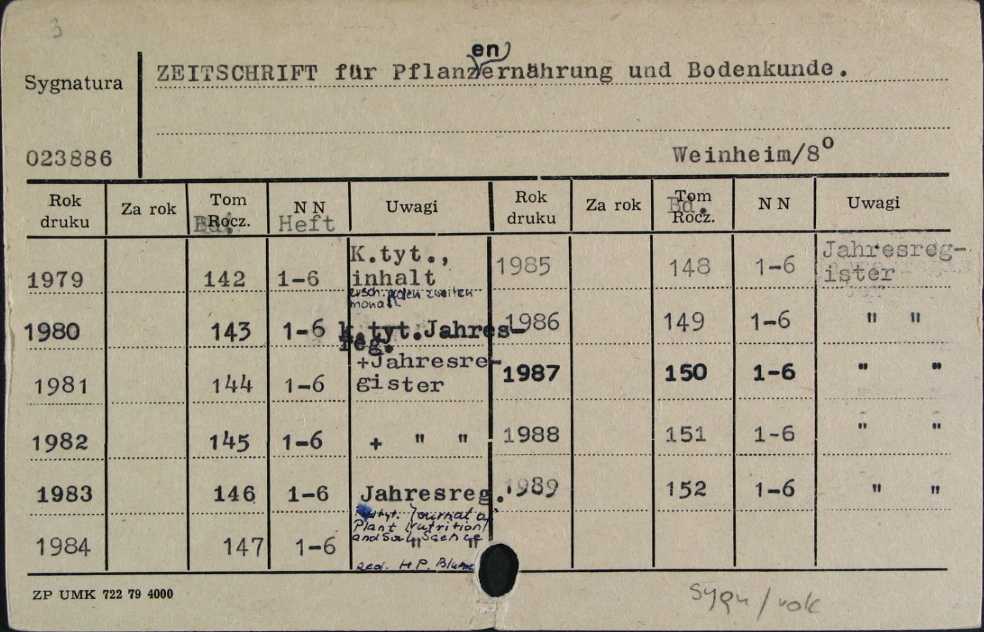 3
en
Sygnatura ZEITSCHRIFT für Pflanzernährung und Bodenkunde.
023886 Weinheim/8°
Rok druku Za rok Tom Rocz. Bd. NN Heft Uwagi Rok druku Za rok Tom Rocz. Bd. NN Uwagi
1979 142 1-6 K.tyt., inhalt 1985 148 1-6 Jahresreg-ister
ersch. jeden zweiten monat
1980 143 1-6 k.tyt.Jahres-reg. 1986 149 1-6 " "
1981 144 1-6 +Jahresre-gister 1987 150 1-6 " "
1982 145 1-6 + " " 1988 151 1-6 " "
1983 146 1-6 Jahresreg. 1989 152 1-6 " "
tyt. Journal of Plant Nutrition and Soil Science
1984 147 1-6 " "
red. H.P. Blume
ZP UMK 722 79 4000
Sygn/rok